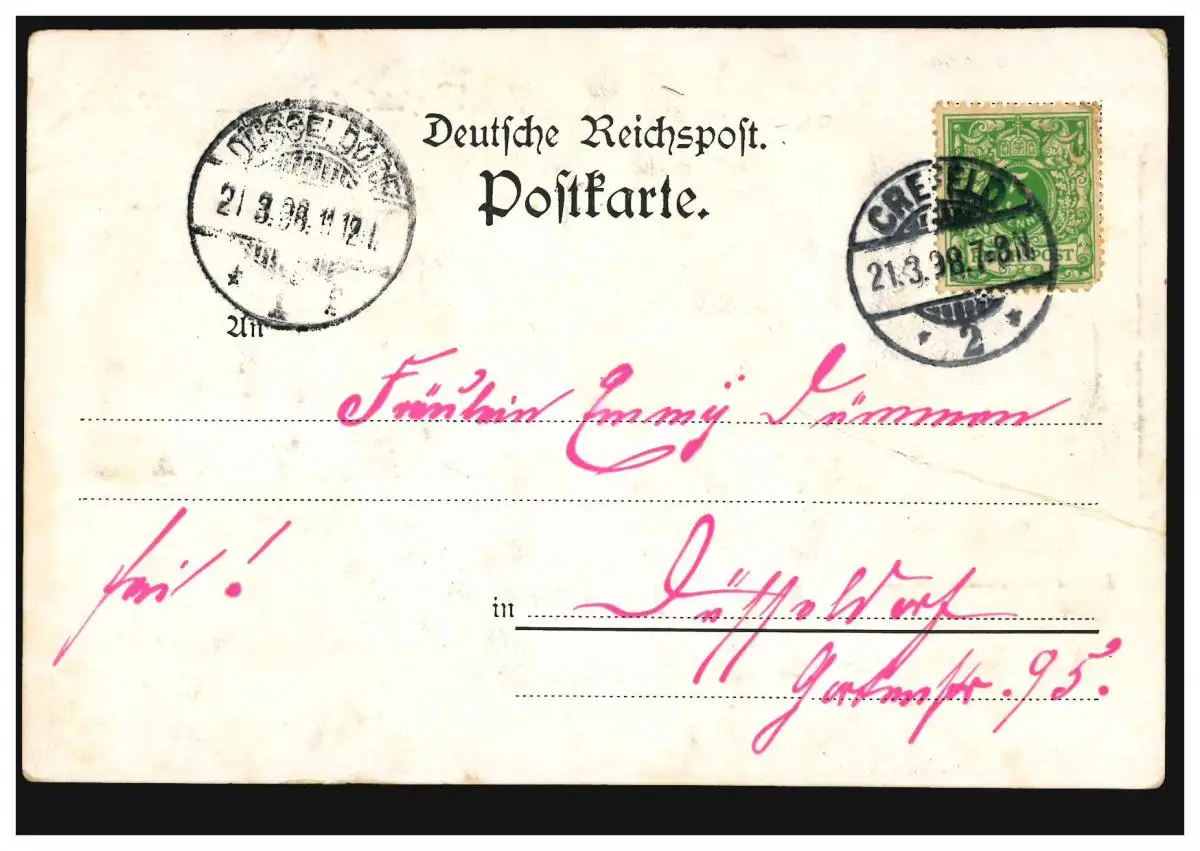 Deutsche Reichspost.
Postkarte.
DÜSSELDORF
21 3.98.11-12
* 1 *
CREFELD
21.3.98.7-8N.
* 2 *
5
REICHSPOST
An
Fräulein Emmÿ
frei!
in Düsseldorf
Gartenstr. 95.